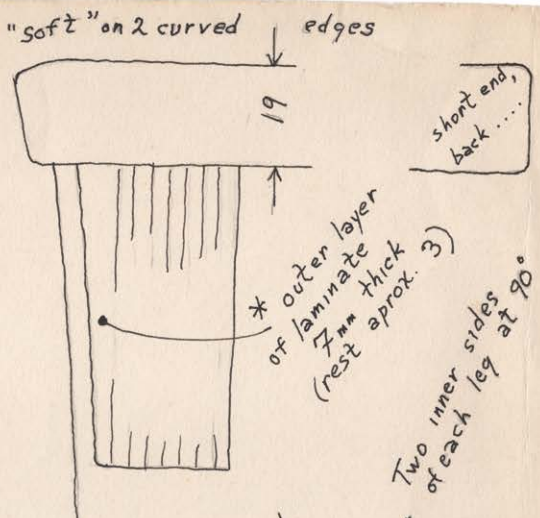 "soft" on 2 curved edges
19
short end,
back ....
* outer layer
of laminate
7mm thick
(rest aprox. 3)
Two inner sides
of each leg at 90°